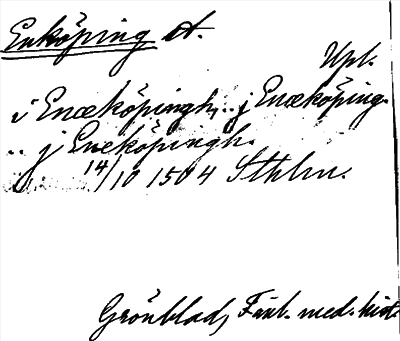 Enköping St.
Upl.
i Enæköpingh, .. j Enæköping.
.. j Eneköpingh.
14/10 1504 Sthlm.
Grönblad, Färl. med. hist.